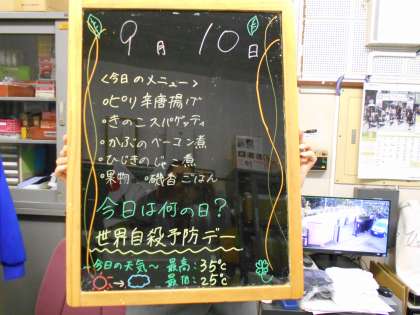 9月10日
<今日のメニュー>
・ピリ辛唐揚げ
・きのこスパゲッティ
・かぶのベーコン煮
・ひじきのじゃこ煮
・果物 ・磯香ごはん
今日は何の日?
世界自殺予防デー
~今日の天気~ 最高:35℃
最低:25℃